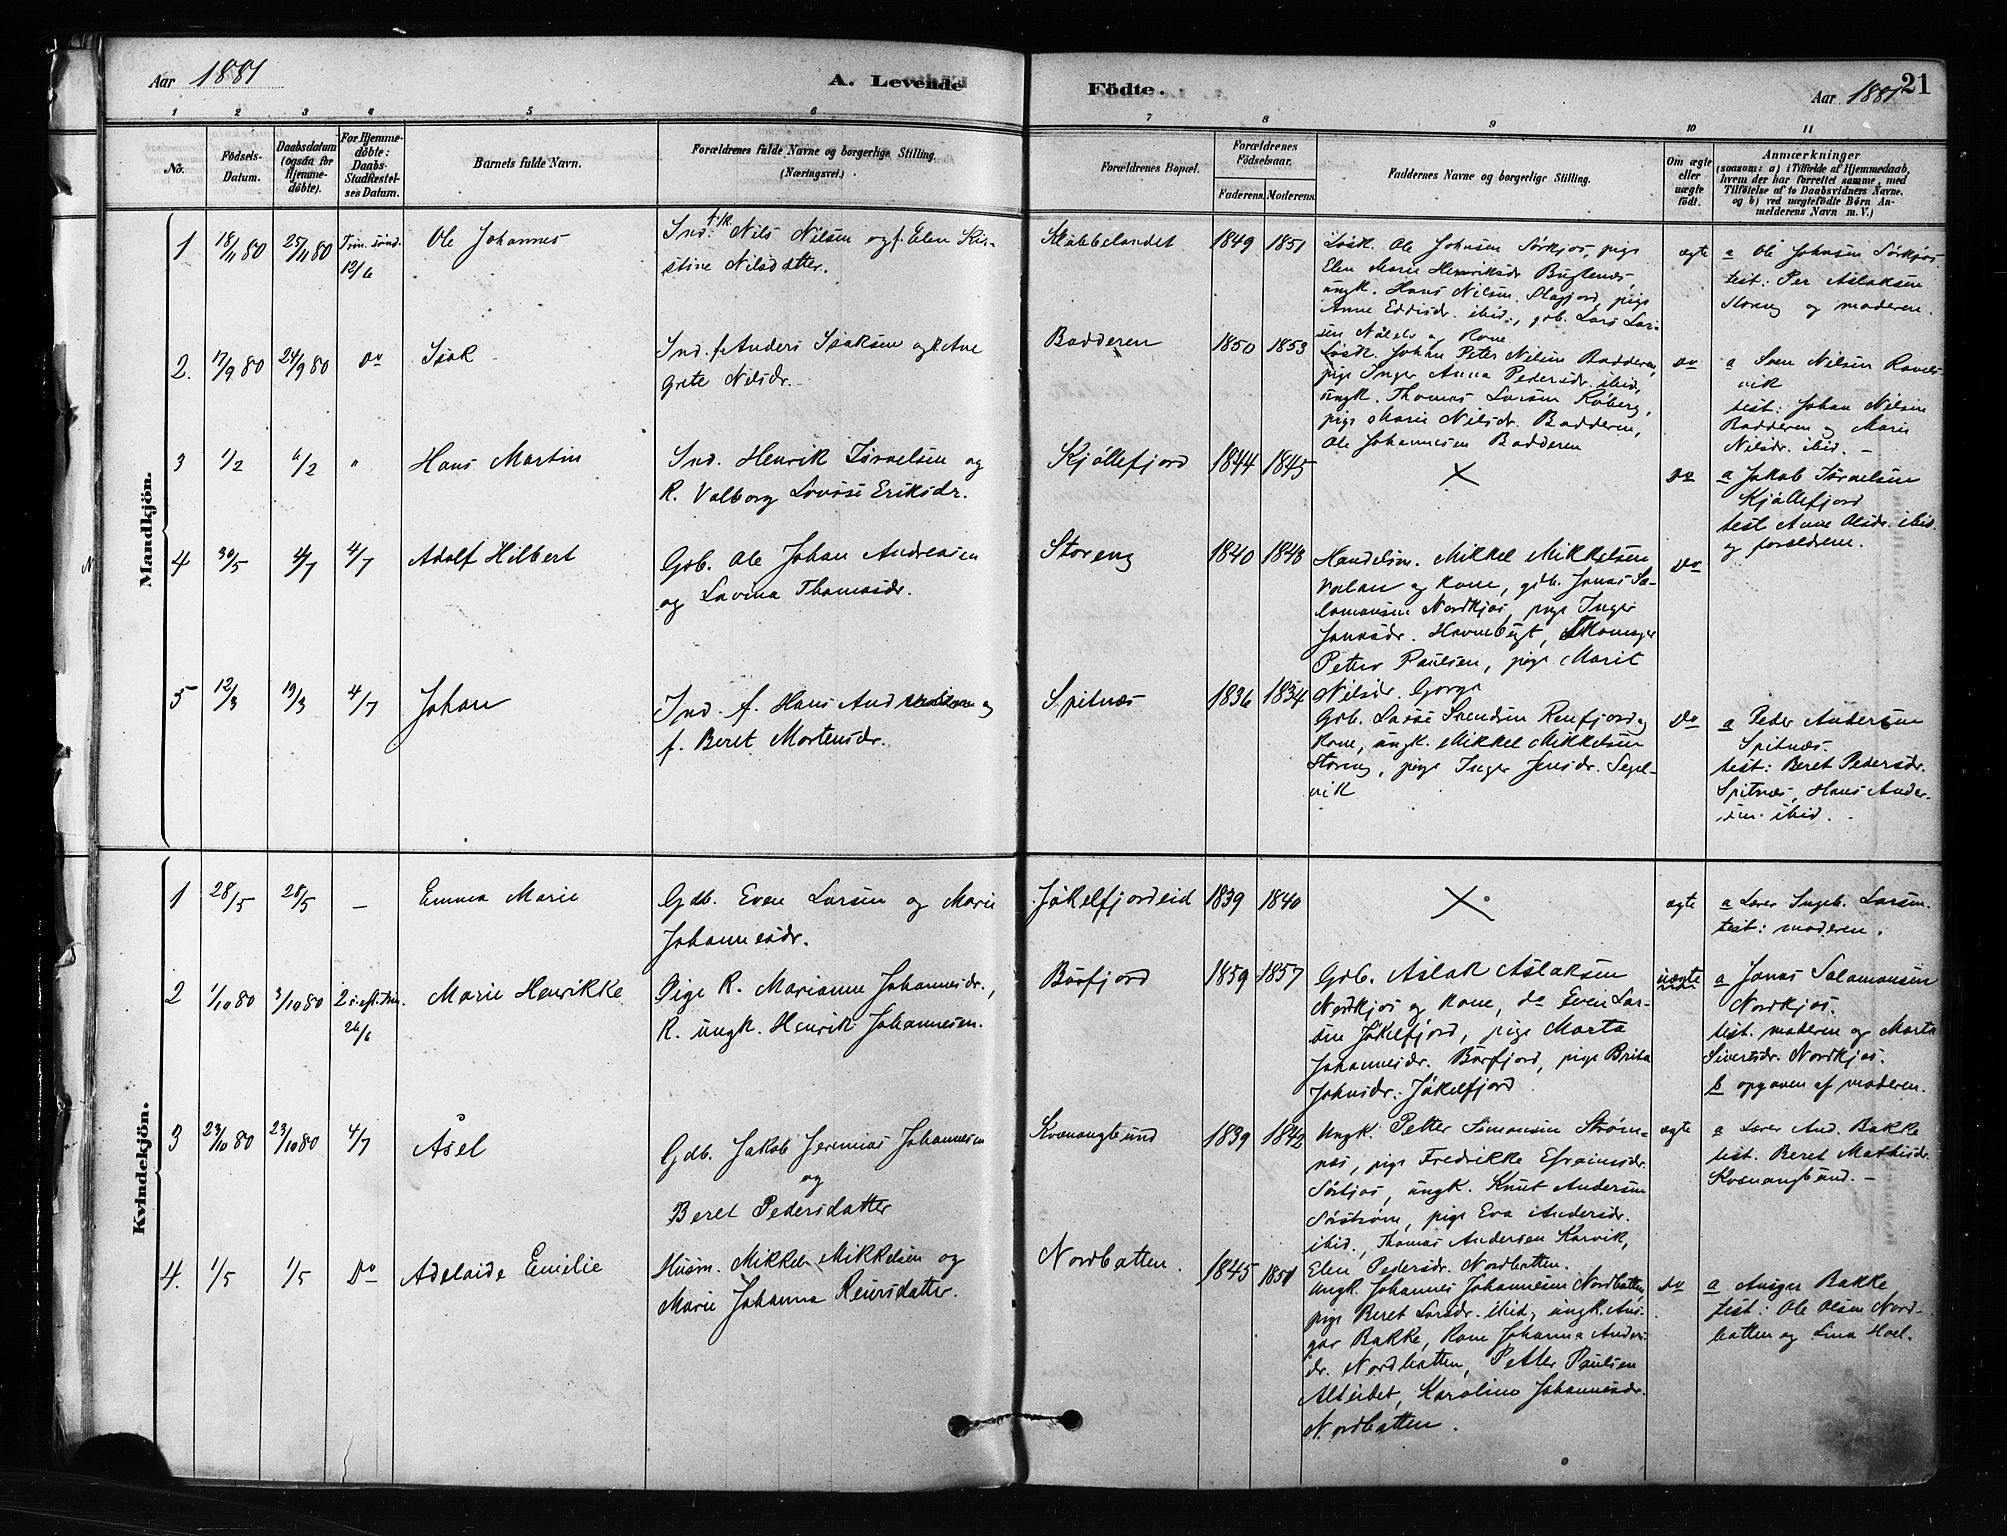 Aar 1881
A. Levende
Födte.
Aar 1881
21
1 2 3 4 5 6 7 8 9 10 11
No.
Födsels-
Datum.
Daabsdatum
(ogsaa for
Hjemme-
döbte).
For Hjemme-
döbte:
Daabs-
Stadfæstel-
ses Datum.
Barnets fulde Navn.
Forældrenes fulde Navne og borgerlige Stilling.
(Næringsvei.)
Forældrenes Bopæl.
Forældrenes
Födselsaar.
Faderens. Moderens.
Faddernes Navne og borgerlige Stilling.
Om ægte
eller
uægte
födt.
Anmærkninger
(saasom: a) i Tilfælde af Hjemmedaab,
hvem der har forrettet samme, med
Tilföielse af to Daabsvidners Navne,
og b) ved uægtefödte Börn An-
melderens Navn m. V.)
Mandkjön.
1 18/11 80 25/11 80 Trin. sönd. 12/6
Ole Johannes
Ind. Nils Nilsen og f. Elen Kir-
stine Nilsdatter.
1849 1851
Løsk. Ole Johnsen Sørkjos, pige
Elen Marie Henriksdr. Bugtenæs,
ungk. Hans Nilsen, pige
Anne Eddisdr. ibid., gdb. Lars Lar-
sen og Kone
ægte
a Ole Johnsen Sørkjos.
test: Per Aslaksen
Storeng og moderen.
2. 17/9 80 24/9 80 Do
Isak
Ind. f. Anders Isaksen og k. Ane
Grete Nilsdr.
Badderen
1850 1853
Løsk. Johan Peter Nilsen Badderen,
pige Inger Anna Pedersdr. ibid,
ungk. Thomas Larsen Røberg,
pige Marie Nilsdr. Badderen,
Ole Johannesen Badderen
Do
a Sven Nilsen Ravels-
vik
test: Johan Nilsen
Badderen og Marie
Nilsdr. ibid. –
3 1/2 6/2 "
Hans Martin
Ind. Henrik Isralsen og
K. Valborg Lovise Eriksdr.
Kjøllefjord
1844 1845
X
Do
a Jakob Israelsen
Kjøllefjord
test Anne Olsdr. ibid.
og forældrene.
4 30/5 4/7 4/7
Adolf Hilbert
Gdb. Ole Johan Andreasen
og Lavina Thomasdr.
Storeng
1840 1843
Handelsm. Mikkel Mikkelsen
Valan og Kone, gdb. Jonas Sa-
lamonsen Nordkjos, pige Inger
Jonasdr. Havnebugt,
Petter Paulsen, pige Marit
Nilsdr. Gorga
Do
5 12/3 19/3 4/7
Johan
Ind. f. Hans Andersen og
f. Beret Mortensdr.
Spitnæs
1836 1834
Gdb. Lasse Svendsen Renfjord og
Kone, ungk. Mikkel Mikkelsen
Storeng, pige Inger Jensdr. Segel-
vik
Do
a Peder Andersen
Spitnæs.
test: Beret Pedersdr.
Spitnæs, Hans Ander-
sen ibid. –
Kvindekjön.
1 28/5 28/5 –
Emma Marie
Gdb. Even Larsen og Marie
Johannesdr.
Jøkelfjordeid
1839 1840
X
ægte
a Lærer Ingeb. Larsen.
test: moderen.
2 1/10 80 3/10 80 2 s. eft. Trin. 26/6
Marie Henrikke
Pige K. Marianne Johannesdr.,
K. ungk. Henrik Johannesen.
Børfjord
1859 1857
Gdb. Aslak Aslaksen
Nordkjos og Kone, do Even Lar-
sen Jøkelfjord, pige Marta
Johannesdr. Børfjord, pige Brita
Johnsdr. Jøkelfjord
uægte
a Jonas Salamonsen
Nordkjos.
test. moderen og Marta
Sivertsdr. Nordkjos.
b opgaven af moderen.
3 23/10 80 23/10 80 4/7
Åsel
Gdb. Jakob Jeremias Johannesen
og
Beret Pedersdatter
Kvænangbund
1839 1842
Ungk. Petter Simonsen Strøm-
næs, pige Fredrikke Efraimsdr.
Sørkjos, ungk. Knut Andersen
Sørstrøm, pige Eva Andersdr.
ibid., Thomas Andersen Karvik,
Elen Pedersdr. Nordbotten.
ægte
a Lærer And. Bakke
test. Beret Mathisdr.
Kvænangbund. –
4. 1/5 1/5 Do
Adelaide Emilie
Husm. Mikkel Mikkelsen og
Marie Johanna Reiersdatter.
Nordbotten.
1845 1851
Ungk. Johannes Johannesen Nordbotten,
pige Beret Larsdr. ibid, ungk. Ans-
gar Bakke, Kone Johanna Anders-
dr. Nordbotten, Petter Paulsen
Alteidet, Karoline Johannesdr.
Nordbotten.
Do
a Ansgar Bakke
test: Ole Olsen Nord-
botten og Lina Hoel.